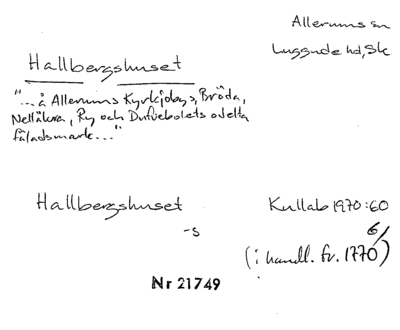 Allerums sn
Luggude hd, Sk
Hallbergshuset
"... å Allerums Kyrkjobys, Bröda,
Nellåkra, Ry och Dufvebolets odelta
fäladsmark..."
Hallbergshuset
-s
Kullab 1970:60
6/
(i handl. fr. 1770)
Nr 21749